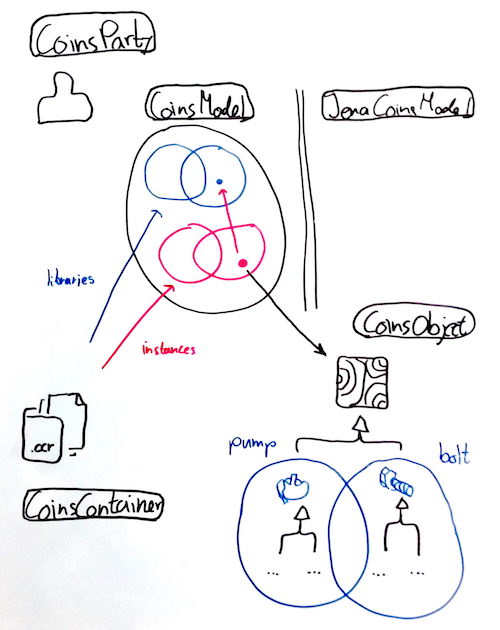 CoinsParty
CoinsModel
JenaCoinsModel
libraries
instances
CoinsObject
.ccr
pump
bolt
CoinsContainer
... ... ... ...